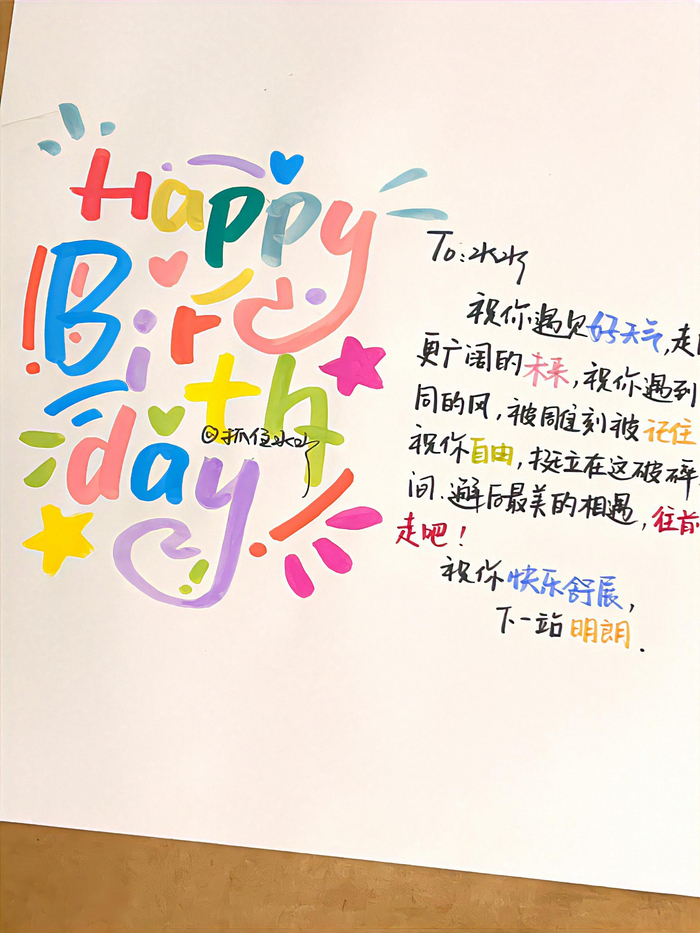 Happy
Birth
day
@抓住水水
To:水水
祝你遇见好天气,走
更广阔的未来,祝你遇到
同的风,被雕刻被记住
祝你自由,挺立在这破碎
间.邂后最美的相遇,往前
走吧!
祝你快乐舒展,
下一站明朗.